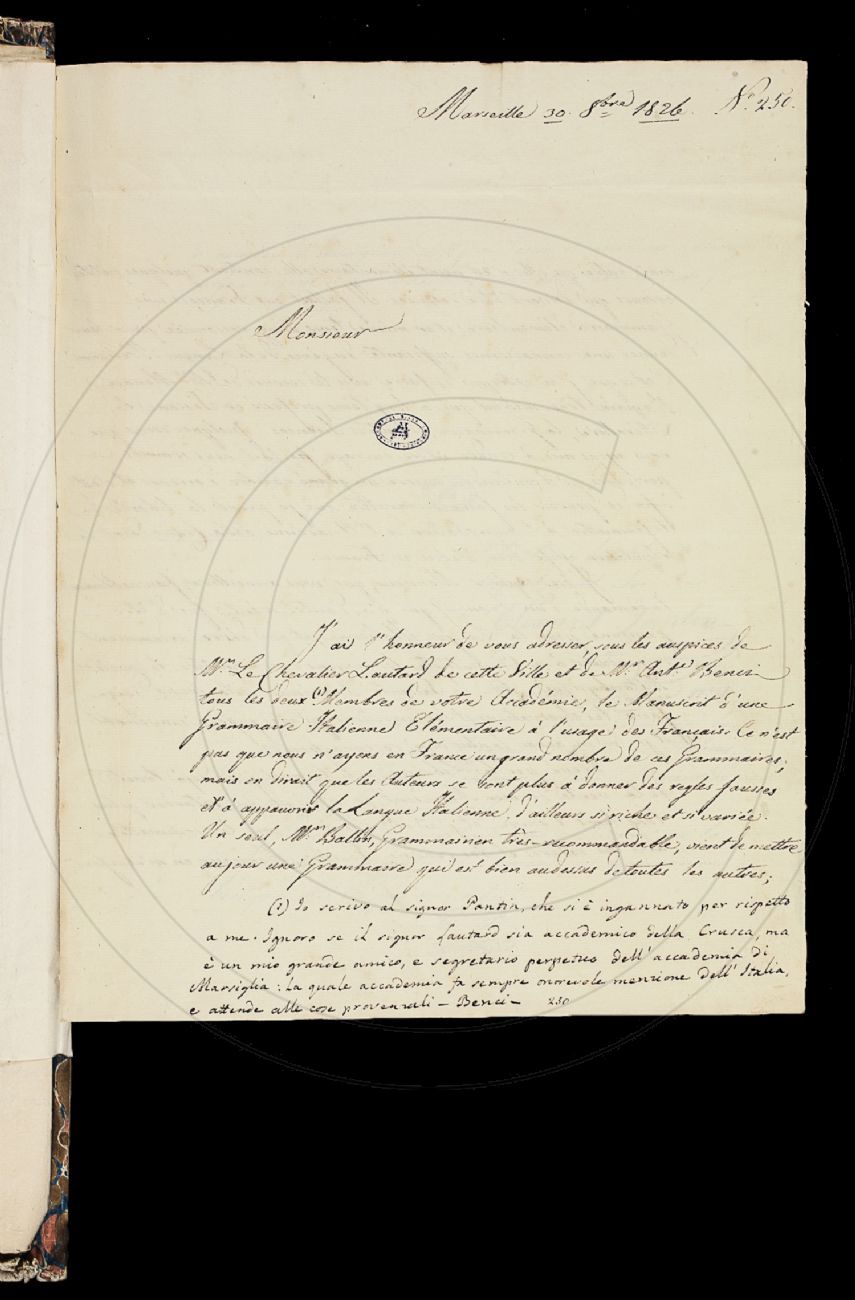 Marseille 30. 8bre 1826. N.º 250.
Monsieur
J'ai l'honneur de vous adresser, sous les auspices de
Mr. Le Chevalier Lautard de cette Ville et de Mr. Ant. Benci
tous les deux (1) Membres de votre Académie, le Manuscrit d'une
Grammaire Italienne Elémentaire à l'usage des Français. Ce n'est
pas que nous n'ayons en France un grand nombre de ces Grammaires;
mais on dirait que les Auteurs se sont plus à donner des regles fausses
et à appauvrir la Langue Italienne, d'ailleurs si riche et si variée.
Un seul, Mr. Grammairien très-recommandable, vient de mettre
au jour une Grammaire qui est bien audessus de toutes les autres;
(1) Io scrivo al signor Pantin, che si è ingannato per rispetto
a me. Ignoro se il signor Lautard sia accademico della Crusca, ma
è un mio grande amico, e segretario perpetuo dell'accademia di
Marsiglia: la quale accademia fa sempre onorevole menzione dell'Italia,
e attende alle cose provenzali - Benci - 250